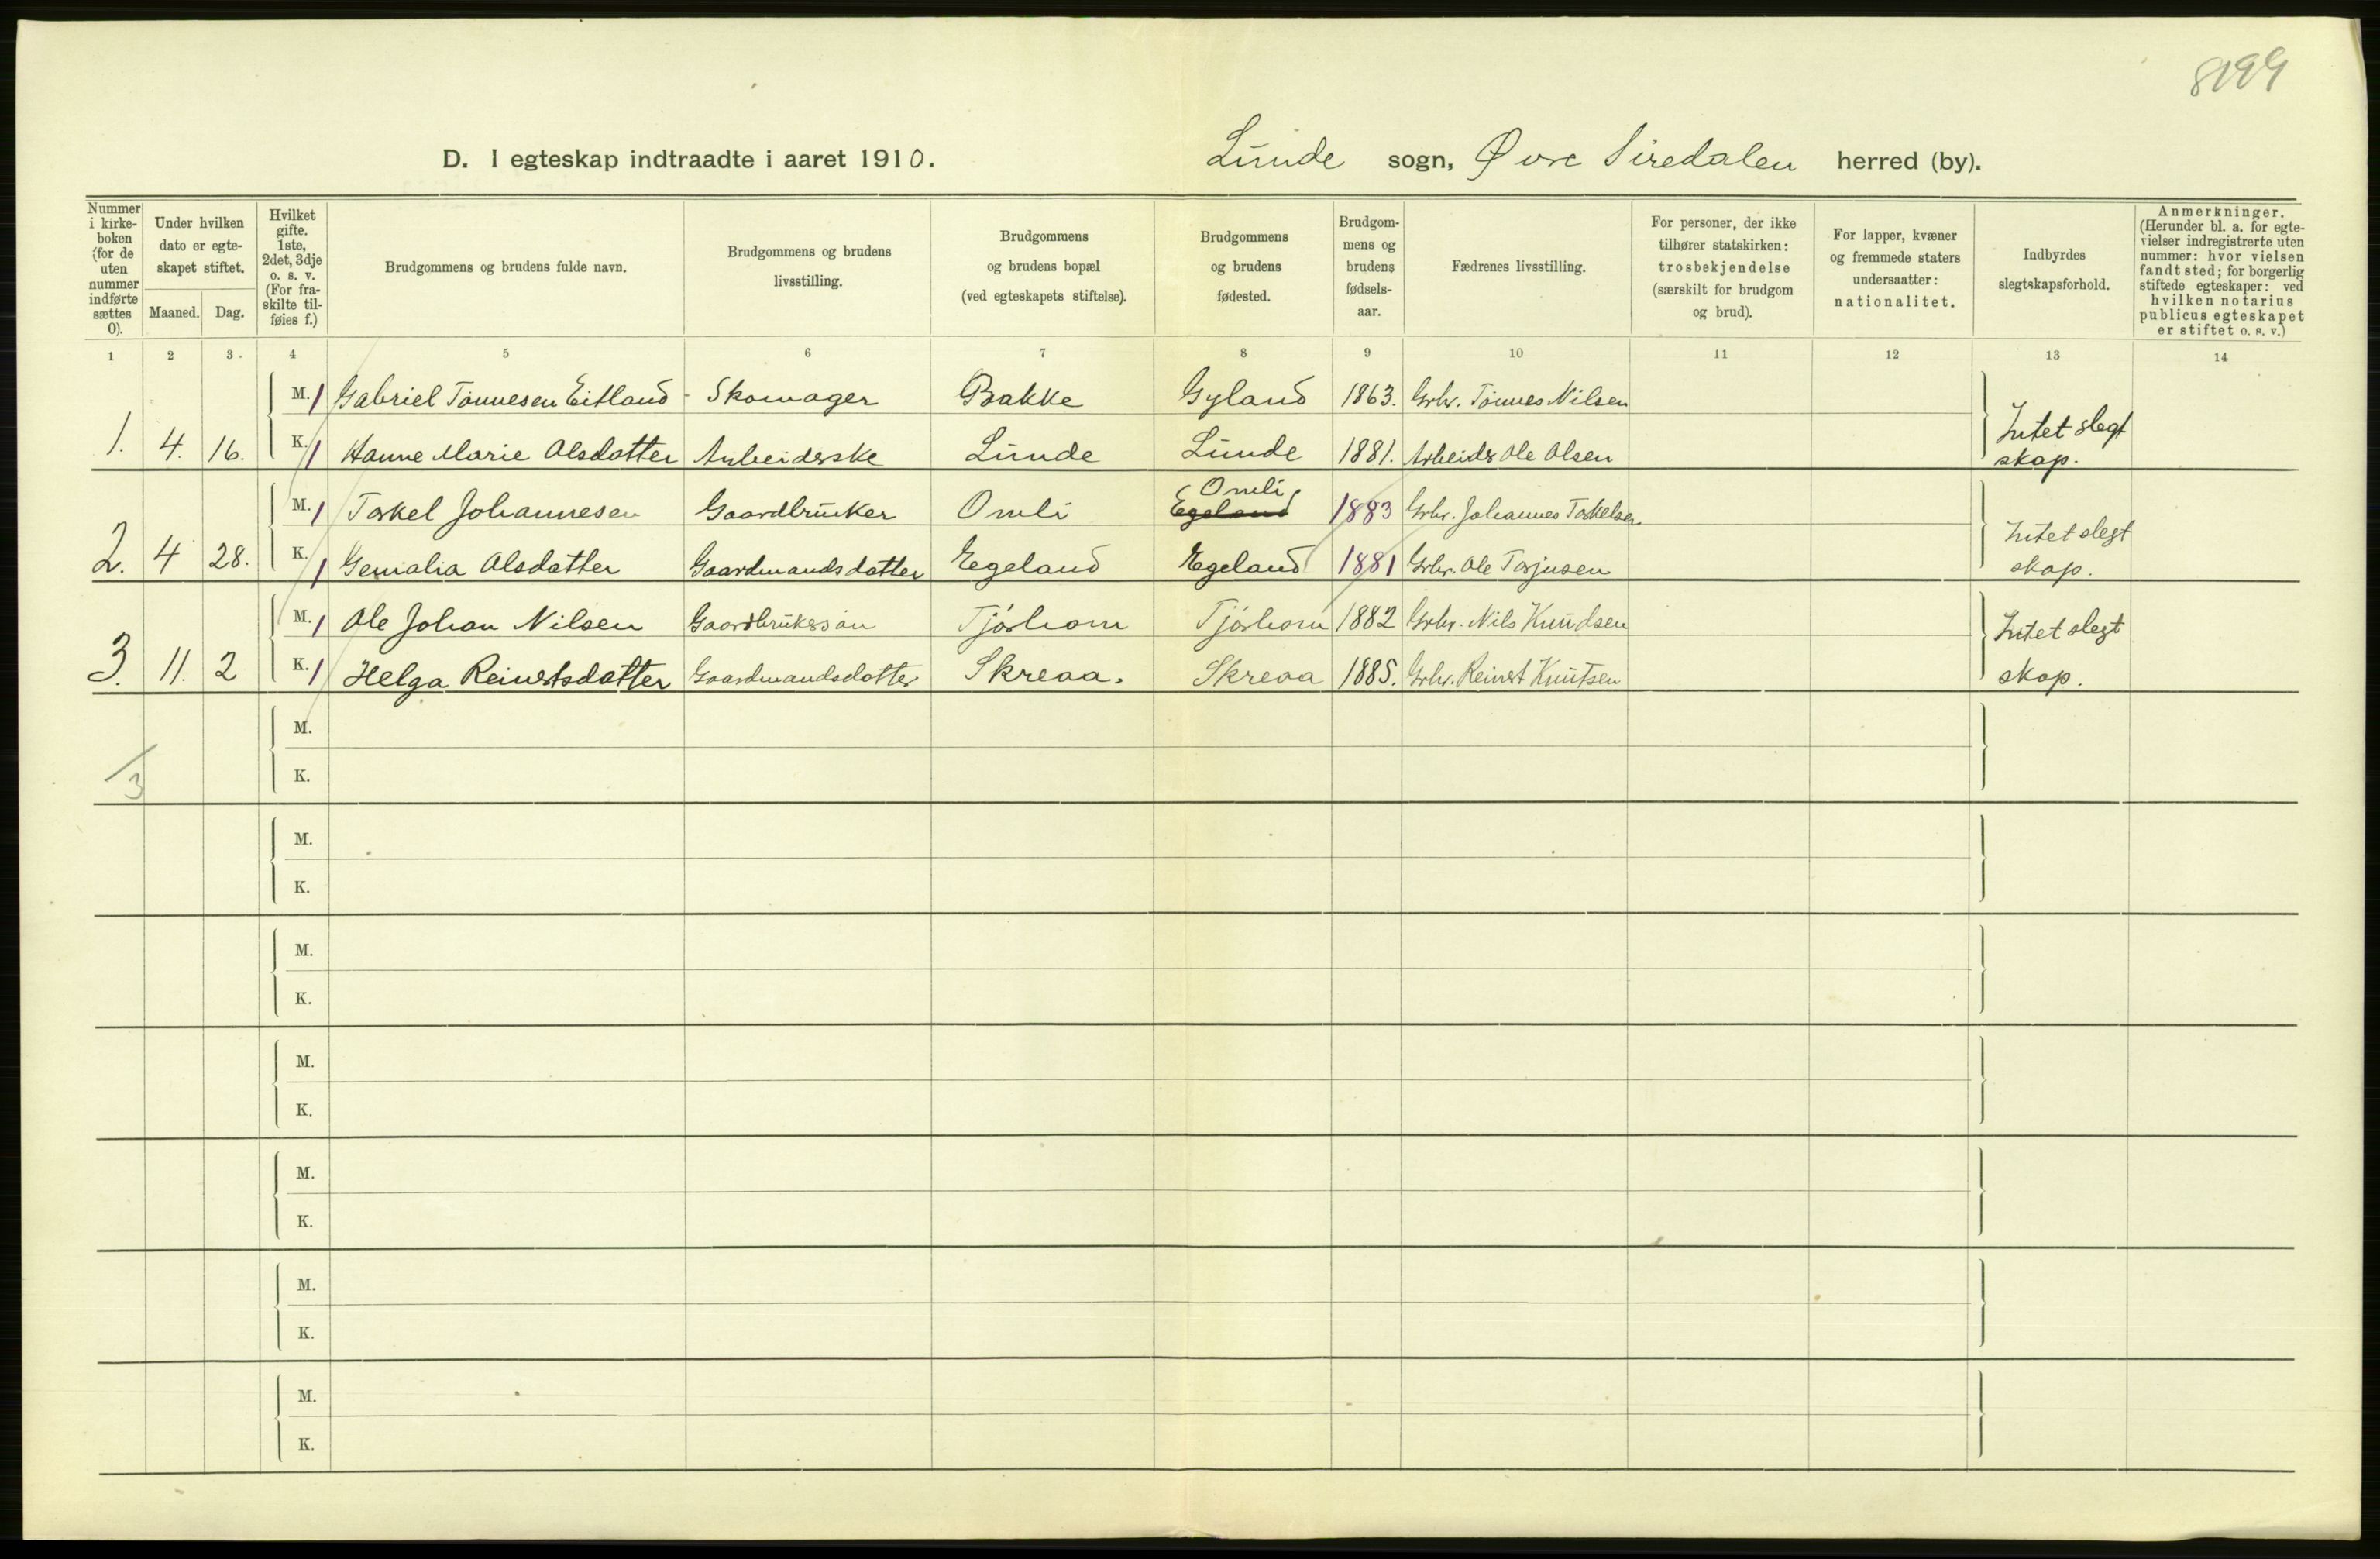 8199
D. I egteskap indtraadte i aaret 1910. Lunde sogn, Øvre Siredalen herred (by).
Nummer i kirke-boken (for de uten nummer indførte sættes 0).
Under hvilken dato er egte-skapet stiftet.
Maaned. Dag.
Hvilket gifte. 1ste, 2det, 3dje o. s. v. (For fra-skilte til-føies f.)
Brudgommens og brudens fulde navn.
Brudgommens og brudens livsstilling.
Brudgommens og brudens bopæl (ved egteskapets stiftelse).
Brudgommens og brudens fødested.
Brudgom-mens og brudens fødsels-aar.
Fædrenes livsstilling.
For personer, der ikke tilhører statskirken: trosbekjendelse (særskilt for brudgom og brud).
For lapper, kvæner og fremmede staters undersaatter: nationalitet.
Indbyrdes slegtskapsforhold.
Anmerkninger. (Herunder bl. a. for egte-vielser indregistrerte uten nummer: hvor vielsen fandt sted; for borgerlig stiftede egteskaper: ved hvilken notarius publicus egteskapet er stiftet o. s. v.)
1 2 3. 4 5 6 7 8 9 10 11 12 13 14
M. 1 Gabriel Tönnesen Eitland - Skomager Bakke Gyland 1863. Grbr. Tönnes Nilsen
1. 4. 16. K. 1 Hanne Marie Olsdatter Arbeiderske Lunde Lunde 1881. Arbeider Ole Olsen Intet slegt
skap.
Omli
M. 1 Torkel Johannesen Gaardbruker Omli Egeland 1883 Grbr. Johannes Torkelsen
2. 4 28. K. 1 Gemalia Olsdatter Gaardmandsdatter Egeland Egeland 1881 Grbr. Ole Torjusen Intet slegt
skap.
M. 1 Ole Johan Nilsen Gaardbrukersön Tjörhom Tjörhom 1882 Grbr. Nils Knudsen Intet slegt
3. 11. 2 K. 1 Helga Reinertsdatter Gaardmandsdatter Skreaa. Skreaa 1885. Grbr. Reinert Knutsen skap.
M.
/3 K.
M.
K.
M.
K.
M.
K.
M.
K.
M.
K.
M.
K.